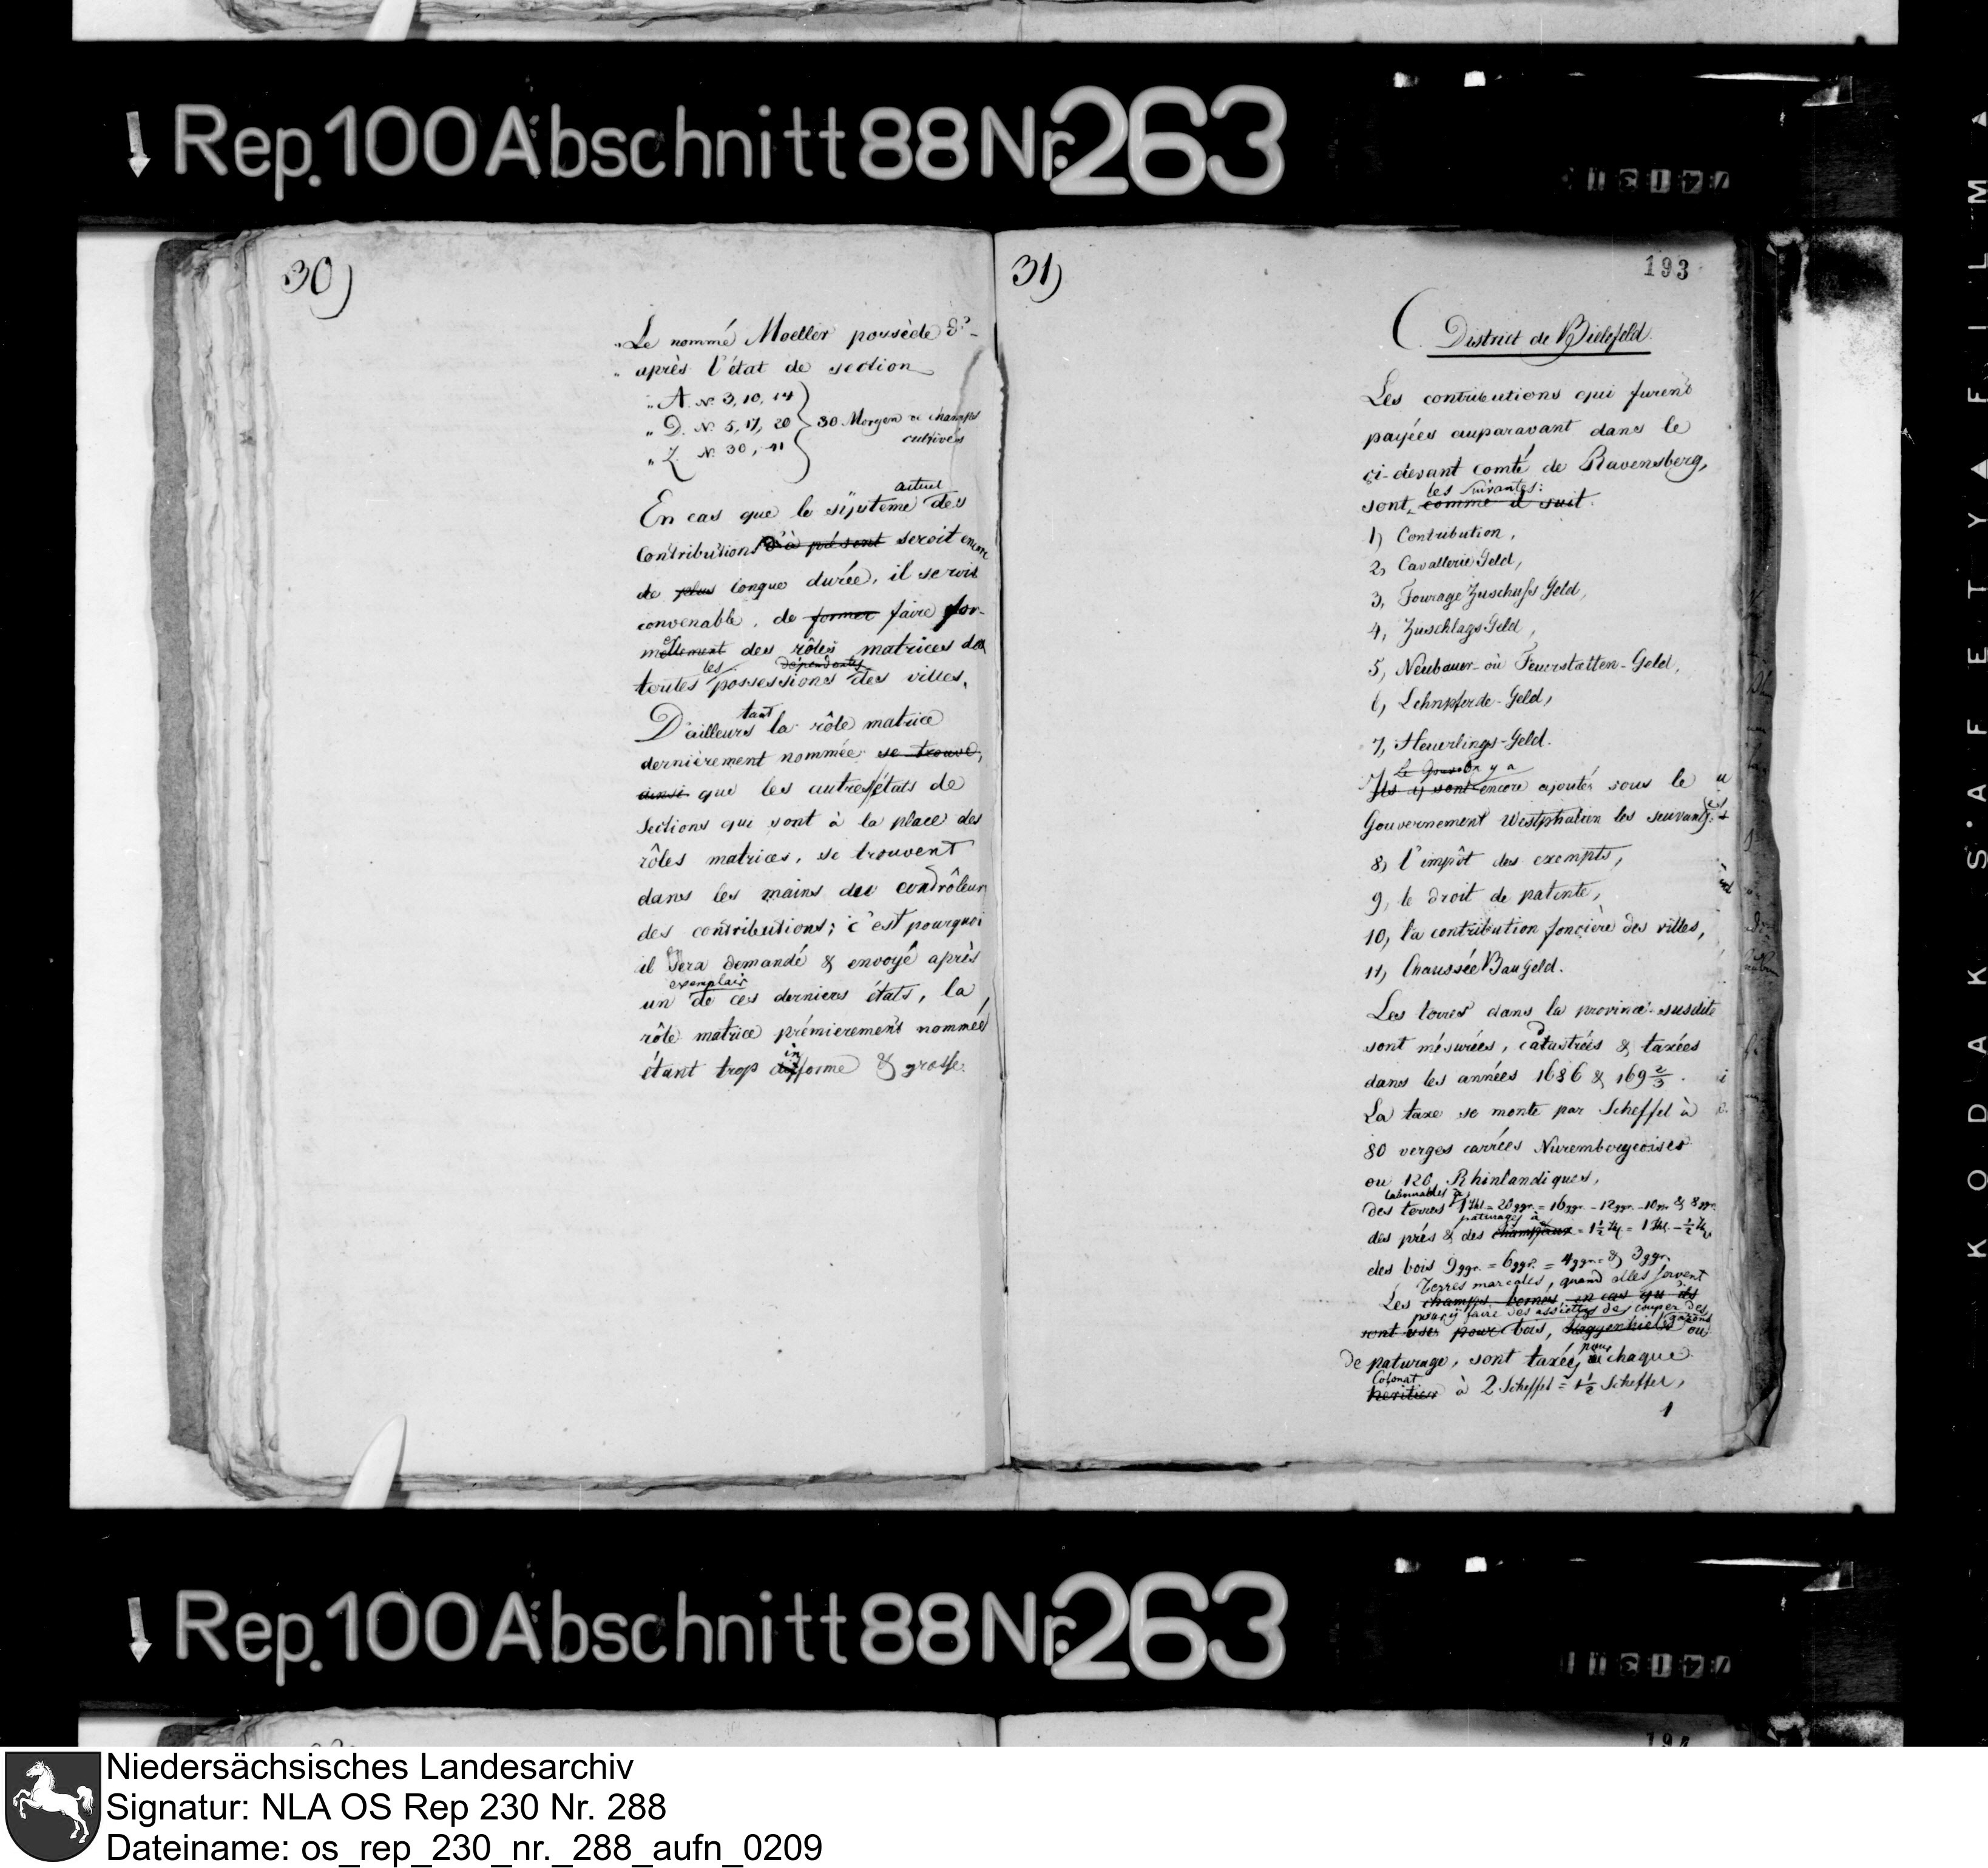 Rep. 100 Abschnitt 88 Nr. 263
30)
„Le nommé Moeller possède d'-
„après l'état de section
„A. N. 3, 10, 14
„D. N. 5, 17, 20 } 30 Morgen de champs
cultivés
„Z. N. 30, 41
actuel
En cas que le sijsteme des
contributions d'à présent seroit encore
de plus longue durée, il seroit
convenable, de former faire for-
mellement des rôles matrices de
les dépendantes
toutes possessions des villes.
tant
D'ailleurs la rôle matrice
dernièrement nommée se trouve,
ainsi que les autres états de
sections qui sont à la place des
rôles matrices, se trouvent
dans les mains du contrôleur
des contributions; c'est pourquoi
il sera demandé & envoyé après
exemplair
un de ces derniers états, la
rôle matrice prémierement nommée
in
étant trop forme & grosse.
31)
193
C. District de Bielefeld.
Les contributions qui furent
payées auparavant dans le
çi-devant comté de Ravensberg,
les suivantes:
sont, comme il suit.
1) Contribution,
2, Cavallerie Geld,
3, Fourage Zuschuss Geld,
4, Zuschlags Geld,
5, Neubauer- où Feuerstætten-Geld,
6, Lehnpferde-Geld,
7, Heuerlings-Geld.
Le Gouv. y a
Ils y sont encore ajoutés sous le
Gouvernement Westphalien les suivants:
8) l'impôt des exempts,
9, le droit de patente,
10, la contribution foncière des villes,
11, Chaussée Bau Geld.
Les terres dans la province susdite
sont mésurées, catastrées & taxées
dans les années 1686 & 169 2/3.
La taxe se monte par Scheffel à
80 verges carrées Nurembergeoises
ou 120 Rhinlandiques,
labourables à
des terres 1 Thl = 20 ggr. = 16 ggr. - 12 ggr. - 10 gr. & 8 ggr.
paturages à
des prés & des champeaux = 1 1/2 = 1 Thl. - 1/2
des bois 9 ggr. = 6 ggr. = 4 ggr. = & 3 ggr.
Terres marcales, quand elles servent
Les champs bornés en cas qu'ils
pour y faire des assiettes de couper des gazons
sont user pour bois, ou
pour
de paturage, sont taxés à chaque
Colonat
heritier à 2 Scheffel = 1 1/2 Scheffel,
1
KODAK SAFETY FILM
Rep. 100 Abschnitt 88 Nr. 263
194
Niedersächsisches Landesarchiv
Signatur: NLA OS Rep 230 Nr. 288
Dateiname: os_rep_230_nr._288_aufn_0209